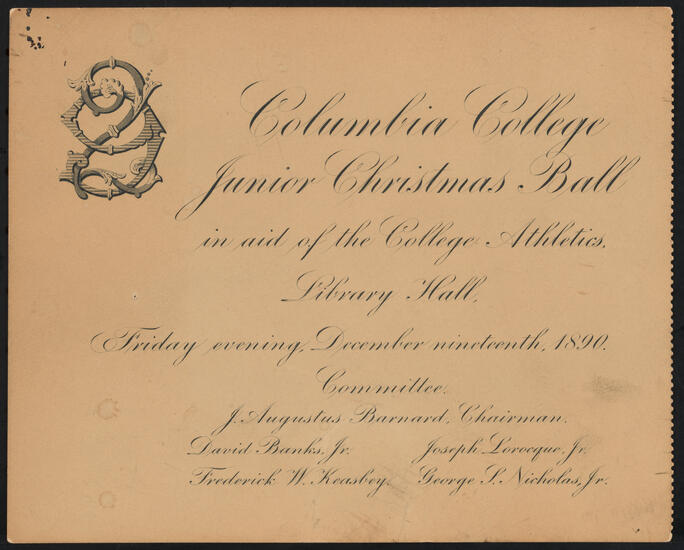 Columbia College
Junior Christmas Ball
in aid of the College Athletics.
Library Hall,
Friday evening, December nineteenth, 1890.
Committee.
J. Augustus Barnard, Chairman.
David Banks, Jr. Joseph Lorocque, Jr.
Frederick W. Keasbey. George S. Nicholas, Jr.